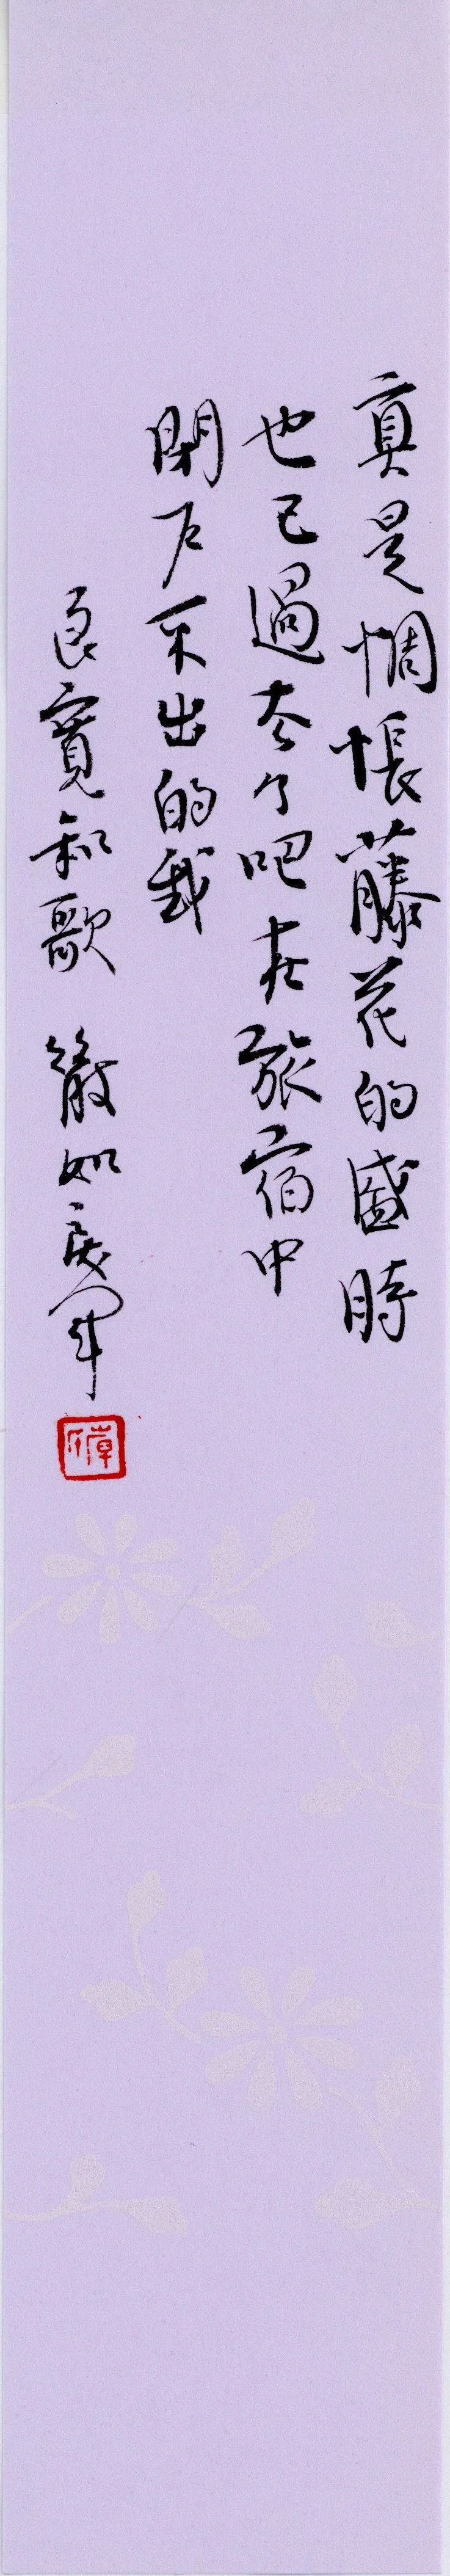 真是惆悵藤花的盛時
也已過去了吧在旅宿中
閉戶不出的我
良寬和歌